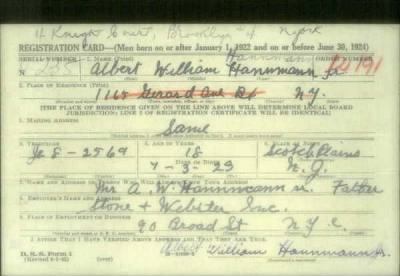 11 Knight Court, Brooklyn 4 N York
REGISTRATION CARD—(Men born on or after January 1, 1922 and on or before June 30, 1924)
SERIAL NUMBER 1. NAME (Print) Hannmann ORDER NUMBER
N 225 Albert William Hannmann Jr
2. PLACE OF RESIDENCE (Print)
1168 Gerard Ave N.Y.
[THE PLACE OF RESIDENCE GIVEN ON THE LINE ABOVE WILL DETERMINE LOCAL BOARD
JURISDICTION; LINE 2 OF REGISTRATION CERTIFICATE WILL BE IDENTICAL]
3. MAILING ADDRESS
Same
4. TELEPHONE 5. AGE IN YEARS 6. PLACE OF BIRTH
Je 8-2569 18 Scotch Plains
DATE OF BIRTH
7-3-23 N.J.
7. NAME AND ADDRESS OF PERSON WHO WILL ALWAYS KNOW YOUR ADDRESS
Mr A. W. Hannmann sr. Father
8. EMPLOYER'S NAME AND ADDRESS
Stone & Webster Inc.
9. PLACE OF EMPLOYMENT OR BUSINESS
90 Broad St N.Y.C.
I AFFIRM THAT I HAVE VERIFIED ABOVE ANSWERS AND THAT THEY ARE TRUE.
D. S. S. Form 1
Albert William Hannmann Jr.